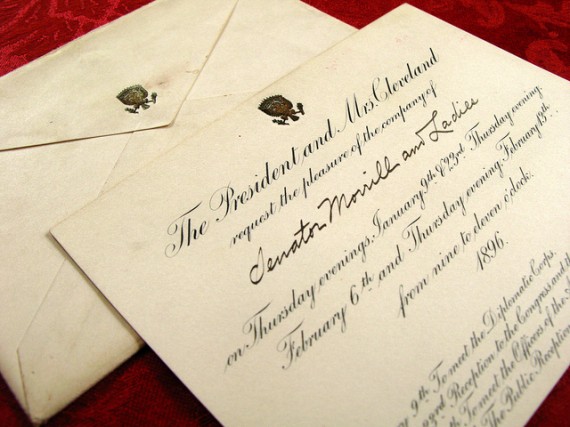 The President and Mrs. Cleveland
request the pleasure of the company of
Senator Morrill and Ladies
on Thursday evenings, January 9th & 23rd. Thursday evening,
February 6th and Thursday evening, February 13th.
from nine to eleven o'clock.
1896.
9th To meet the Diplomatic Corps.
23rd Reception to the Congress and the
6th To meet the Officers of the
The Public Reception